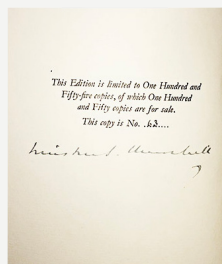 This Edition is limited to One Hundred and
Fifty-five copies, of which One Hundred
and Fifty copies are for sale.
This copy is No. .42....
Winston S. Churchill